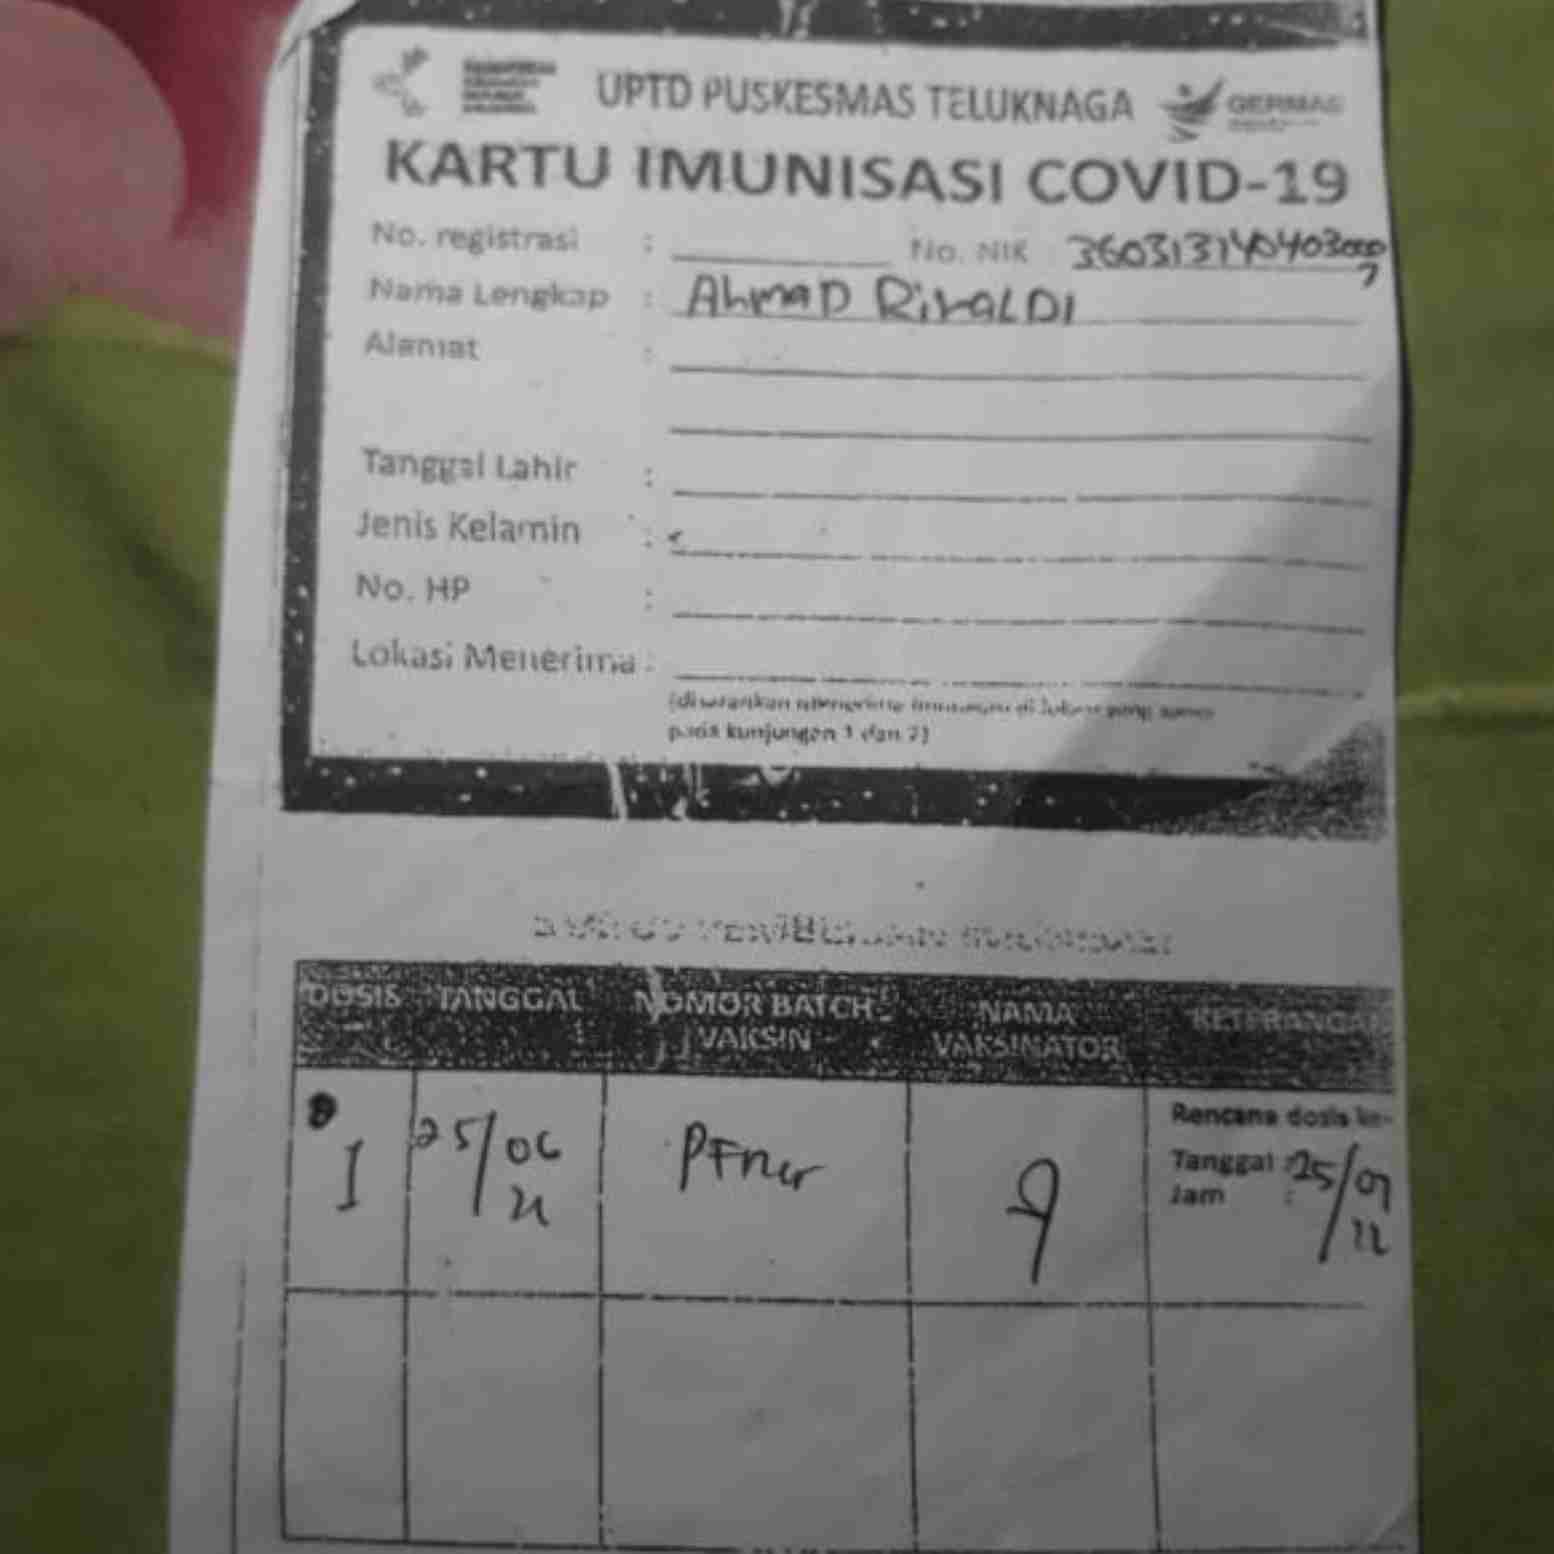 UPTD PUSKESMAS TELUKNAGA
GERMAS
KARTU IMUNISASI COVID-19
No. registrasi : No. NIK 360313140403000
7
Nama Lengkap : AhmaD RivaLDI
Alamat :
Tanggal Lahir :
Jenis Kelamin :
No. HP :
Lokasi Menerima :
(disarankan menerima imunisasi di lokasi yang sama
pada kunjungan 1 dan 2)
DOSIS TANGGAL NOMOR BATCH VAKSIN NAMA VAKSINATOR KETERANGA
I 25/06
Rencana dosis ke-
Tanggal : 25/07
Jam : 22